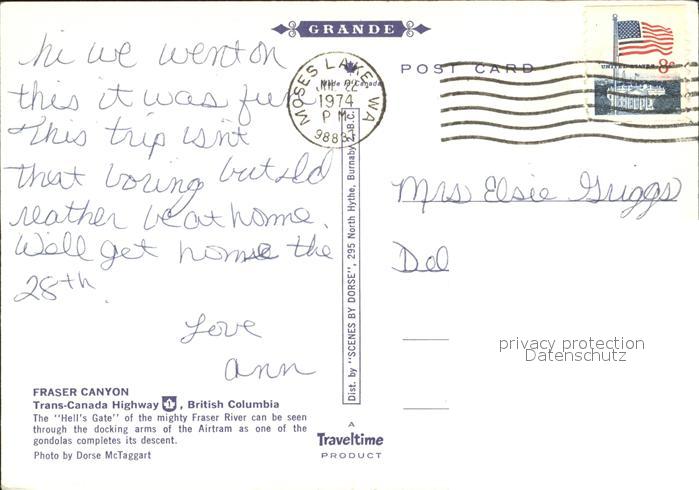 GRANDE
hi we went on
this it was fun
This trip isnt
that boring but Id
reather be at home.
We'll get home the
28th.
Love
Ann
FRASER CANYON
Trans-Canada Highway 1, British Columbia
The "Hell's Gate" of the mighty Fraser River can be seen
through the docking arms of the Airtram as one of the
gondolas completes its descent.
Photo by Dorse McTaggart
Dist. by "SCENES BY DORSE", 295 North Hythe, Burnaby 2, B.C.
Made in Canada
A
Traveltime
PRODUCT
MOSES LAKE, WA
22
1974
PM
POST CARD
UNITED STATES 8c
Mrs Elsie Griggs
Del
privacy protection
Datenschutz